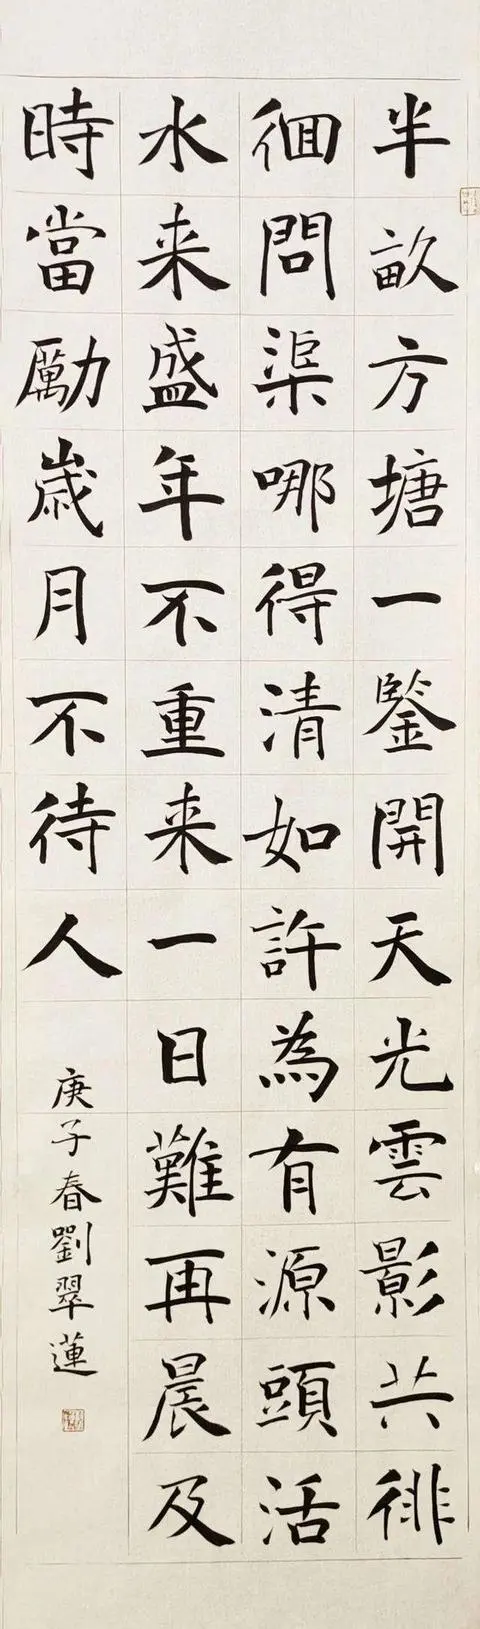 半畝方塘一鑒開天光雲影共徘
徊問渠哪得清如許為有源頭活
水来盛年不重来一日難再晨及
時當勵歲月不待人
庚子春劉翠蓮